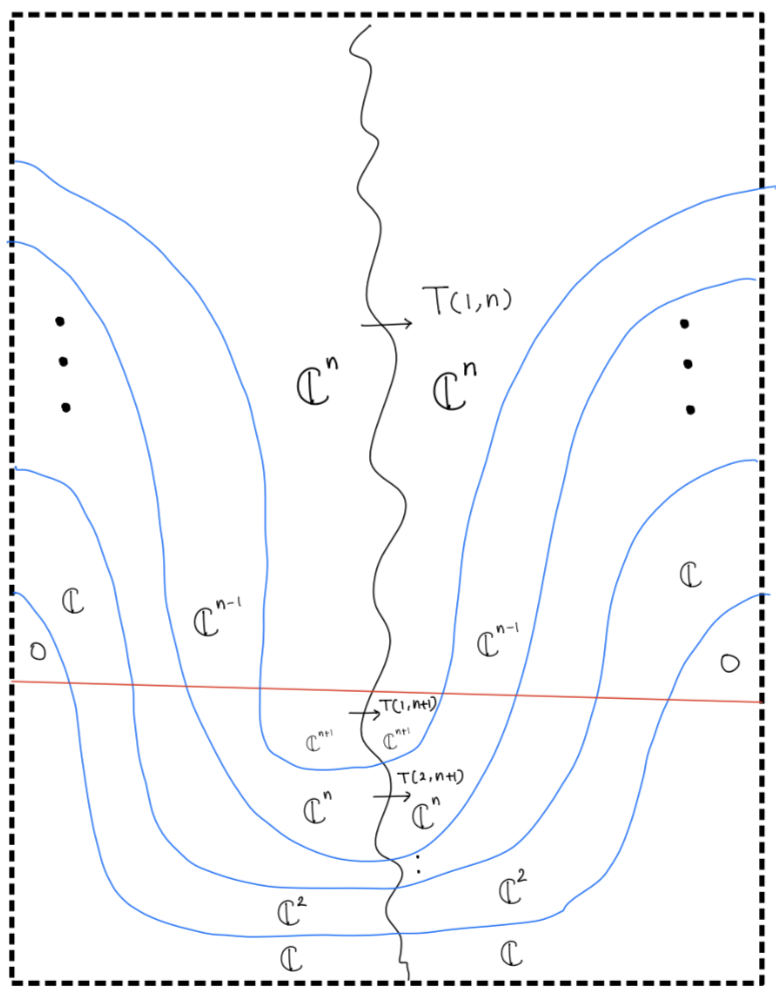 T(1,n)
ℂⁿ ℂⁿ
ℂ ℂ
ℂⁿ⁻¹ ℂⁿ⁻¹
0 0
T(1,n+1)
ℂⁿ⁺¹ ℂⁿ⁺¹
T(2,n+1)
ℂⁿ ℂⁿ
ℂ² ℂ²
ℂ ℂ